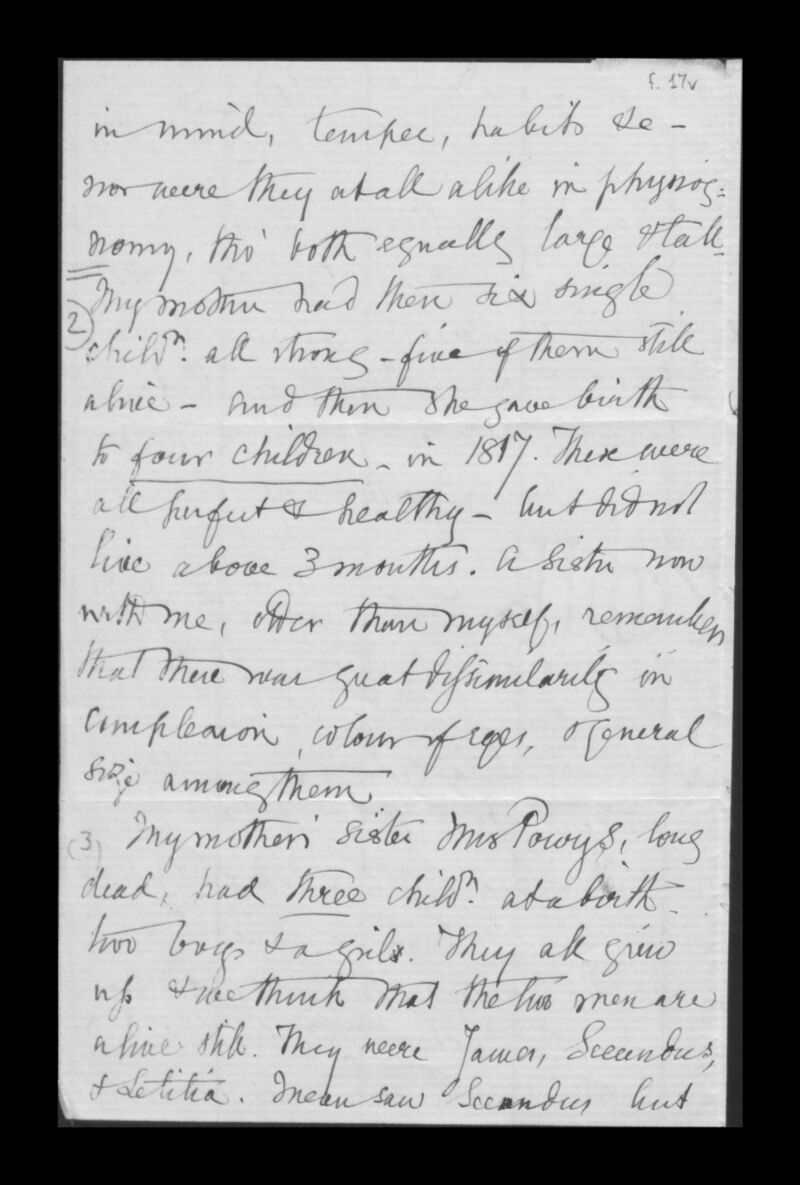 f. 17v
in mind, temper, habits &c –
nor were they at all alike in physiog=
nomy, tho' both equally large & tall.
2) My mother had then six single
childn. all strong – five of them still
alive – and then she gave birth
to four children – in 1817. These were
all perfect & healthy – but did not
live above 3 months. A sister now
with me, older than myself, remembers
that there was great dissimilarity in
complexion, colour of eyes, & general
size among them
(3) My mother's sister Mrs Powys, long
dead, had three childn. at a birth –
two boys & a girl. They all grew
up & we think that the two men are
alive still. They were James, Secundus,
& Letitia. I never saw Secundus but